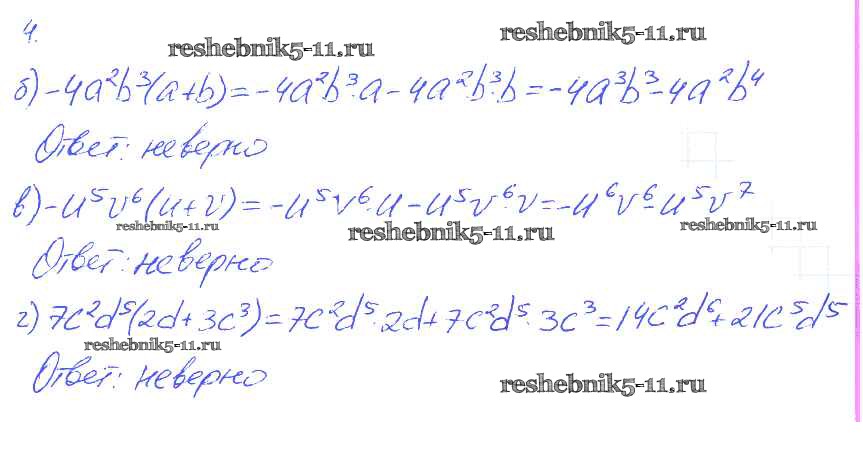 4.
reshebnik5-11.ru reshebnik5-11.ru
б) -4a²b³(a+b) = -4a²b³·a - 4a²b³·b = -4a³b³ - 4a²b⁴
Ответ: неверно
в) -u⁵v⁶(u+v) = -u⁵v⁶·u - u⁵v⁶·v = -u⁶v⁶ - u⁵v⁷
reshebnik5-11.ru reshebnik5-11.ru reshebnik5-11.ru
Ответ: неверно
г) 7c²d⁵(2d+3c³) = 7c²d⁵·2d + 7c²d⁵·3c³ = 14c²d⁶ + 21c⁵d⁵
reshebnik5-11.ru
Ответ: неверно
reshebnik5-11.ru